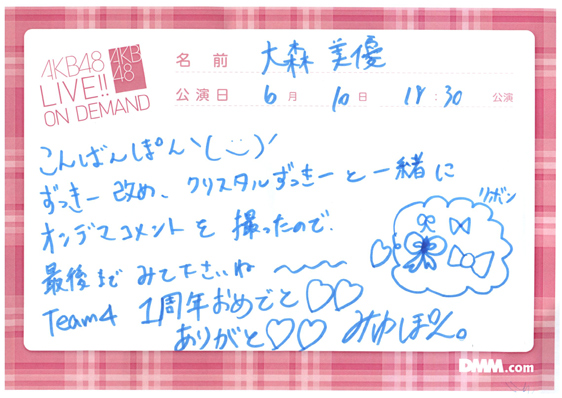 AKB48
LIVE!!
ON DEMAND
AKB
48
名前 大森美優
公演日 6月10日 18:30 公演
こんばんぽん\(¨)/
ずっきー改め、クリスタルずっきーと一緒に
オンデマコメントを撮ったので、
最後までみて下さいね〜〜
リボン
Team4 1周年おめでと♡♡
ありがと♡♡ みゆぽん。
DMM.com